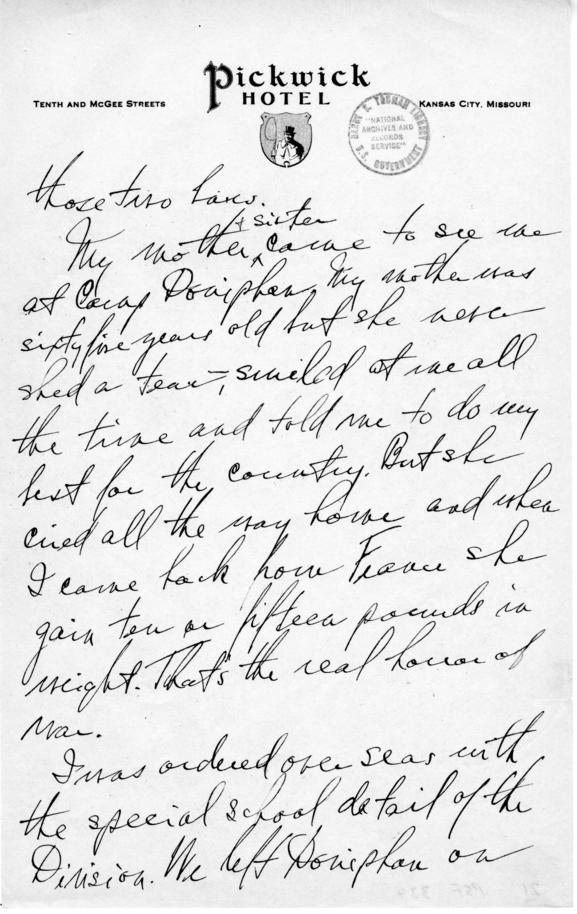 Pickwick
HOTEL
TENTH AND MCGEE STREETS
KANSAS CITY, MISSOURI
HARRY S. TRUMAN LIBRARY
"NATIONAL
ARCHIVES AND
RECORDS
SERVICE"
U.S. GOVERNMENT
those two laws.
+ sister
My mother came to see me
at Camp Doniphan. My mother was
sixty five years old but she never
shed a tear, smiled at me all
the time and told me to do my
best for the country. But she
cried all the way home and when
I came back from France she
gain ten or fifteen pounds in
weight. That's the real horror of
war.
I was ordered over seas with
the special school detail of the
Division. We left Doniphan on